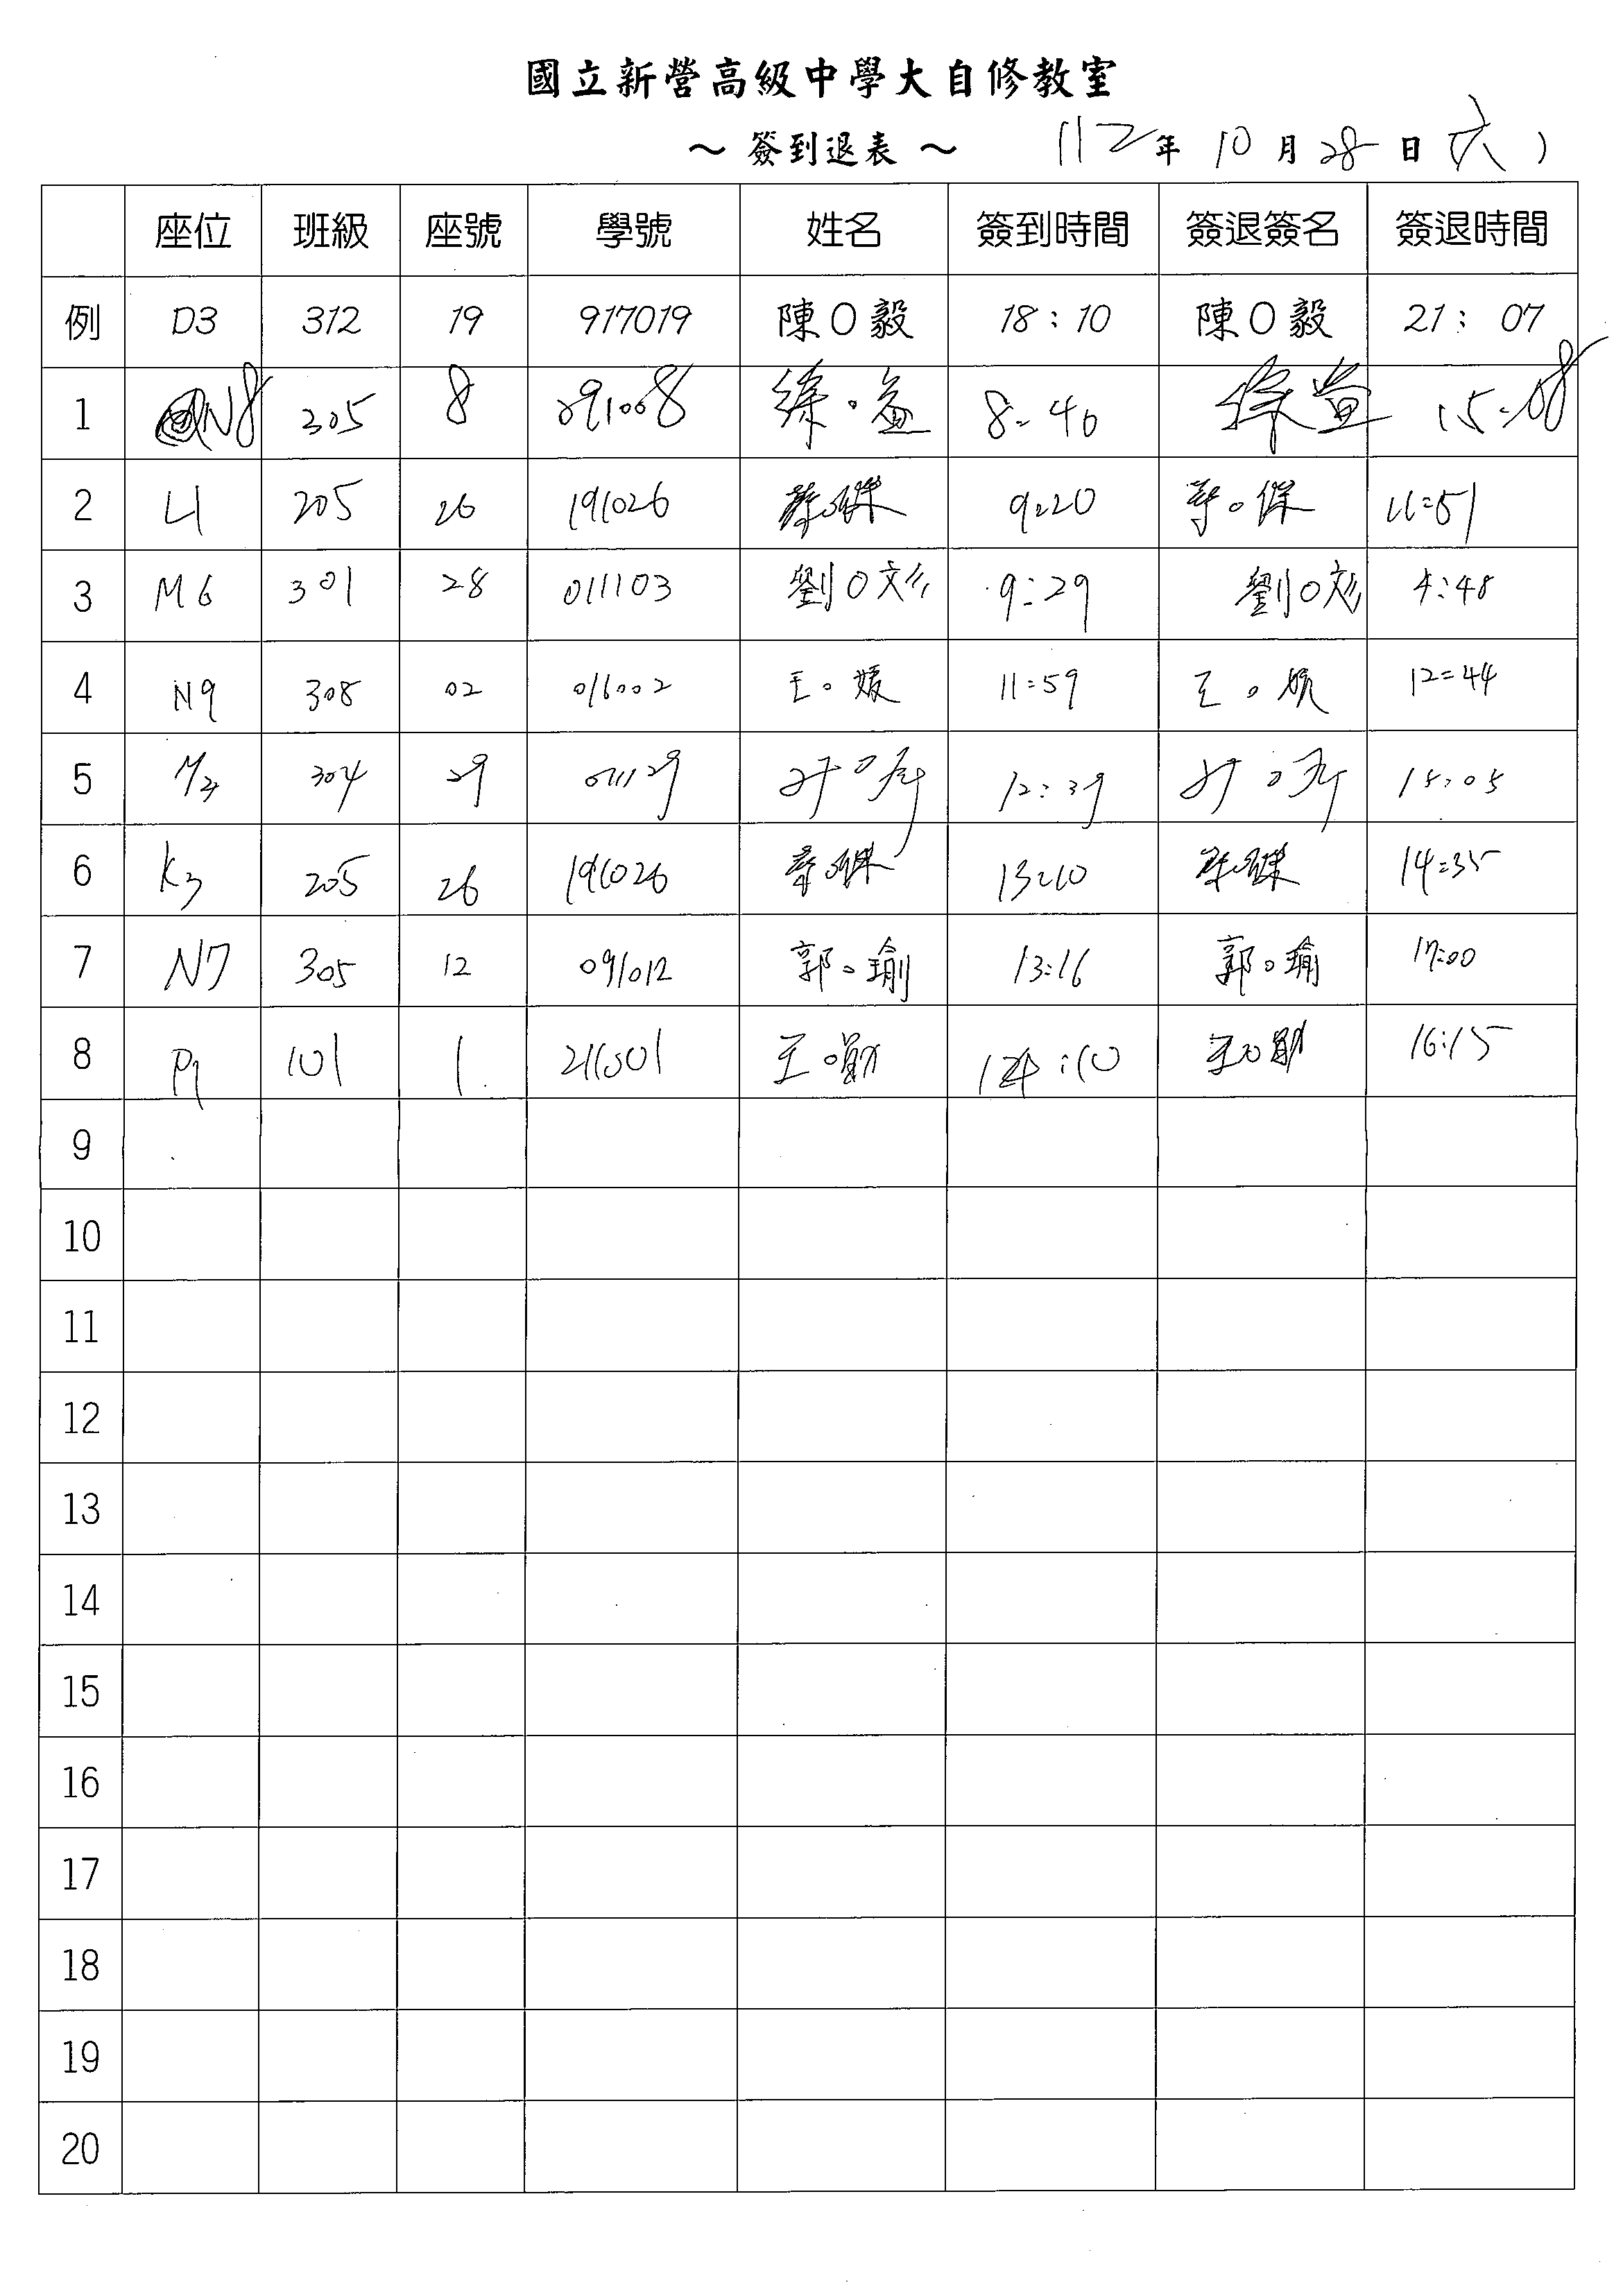 國立新營高級中學大自修教室
～ 簽到退表 ～ 112年 10月 28日(六)
座位 班級 座號 學號 姓名 簽到時間 簽退簽名 簽退時間
例 D3 312 19 917019 陳O毅 18:10 陳O毅 21:07
1 N8 305 8 091008 徐 8:40 徐 15:08
2 L1 205 26 191026 蔡 9:20 11:51
3 M6 301 28 011103 劉O彣 9:29 劉O彣 4:48
4 N9 308 02 016002 王o媛 11:59 王o媛 12:44
5 304 29 011129 12:39 15:05
6 K3 205 26 191026 蔡 13:10 蔡 14:35
7 N7 305 12 091012 郭o瑜 13:16 郭o瑜 17:00
8 P9 101 1 211001 王o勛 14:10 王o勛 16:15
9
10
11
12
13
14
15
16
17
18
19
20